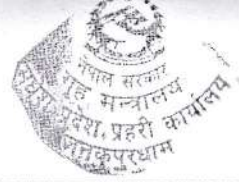 नेपाल सरकार
गृह मन्त्रालय
मधेश प्रदेश, प्रहरी कार्यालय
जनकपुरधाम